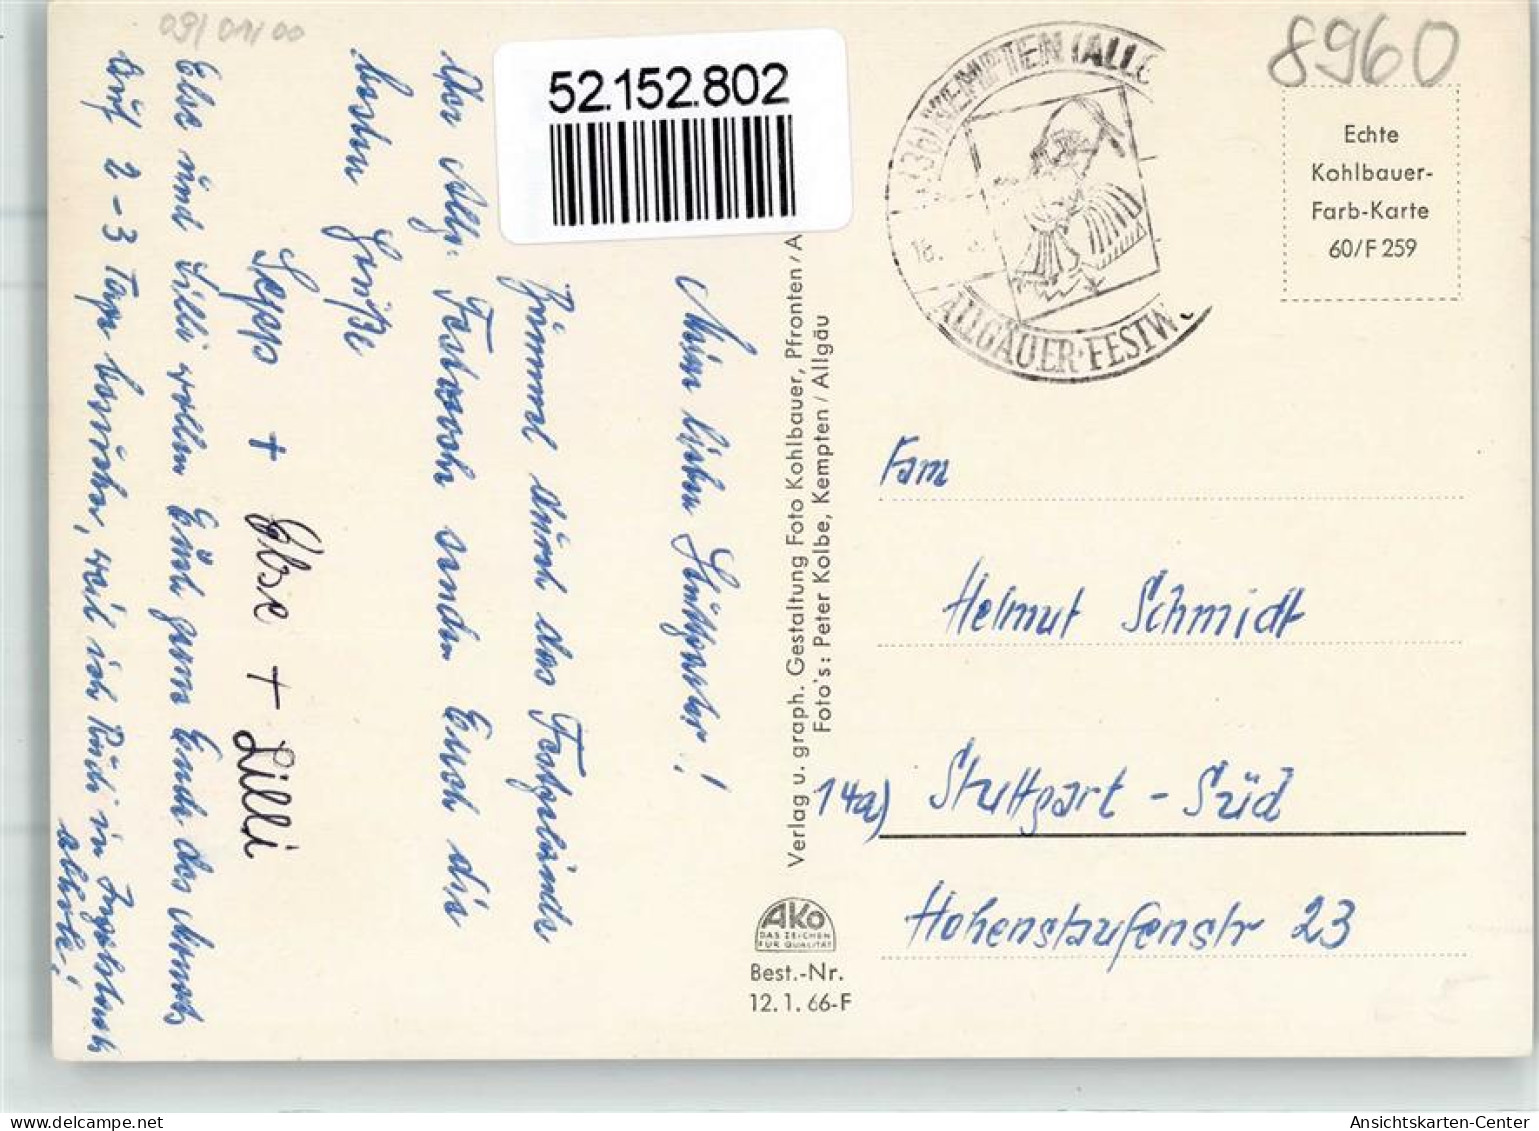 09/01/00
8960
52.152.802
(13b) KEMPTEN (ALLG
18.
ALLGÄUER·FESTW
Echte
Kohlbauer-
Farb-Karte
60/F 259
Meine lieben Stuttgarter!
Bummel durch das Festgelände
der Allg. Festwoche senden Euch die
besten Grüße
Sepp + Else + Lilli
Else und Lilli wollen Euch gerne Ende des Monats
auf 2-3 Tage besuchen, weil ich Rudi in Ingolstadt
abhole!
Verlag u. graph. Gestaltung Foto Kohlbauer, Pfronten / A
Foto's: Peter Kolbe, Kempten / Allgäu
AKO
DAS ZEICHEN
FÜR QUALITÄT
Best.-Nr.
12. 1. 66-F
Fam
Helmut Schmidt
14a) Stuttgart - Süd
Hohenstaufenstr 23
www.delcampe.net
Ansichtskarten-Center